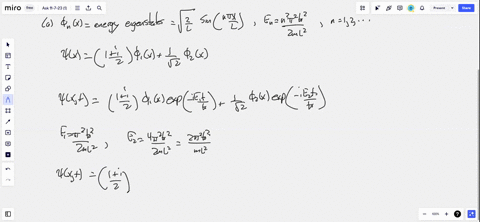 miro Ask 5-7-23 (1) Share
(a) ϕn(x) = energy eigenstates = √(2/L) Sin(nπx/L), En = n²π²ħ²/2mL², n=1,2,...
ψ(x) = ((1+i)/2) ϕ1(x) + 1/√2 ϕ2(x)
ψ(x,t) = ((1+i)/2) ϕ1(x) exp(-iE1t/ħ) + 1/√2 ϕ2(x) exp(-iE2t/ħ)
E1 = π²ħ²/2mL² ; E2 = 4π²ħ²/2mL² = 2π²ħ²/mL²
ψ(x,t) = ((1+i)/2)